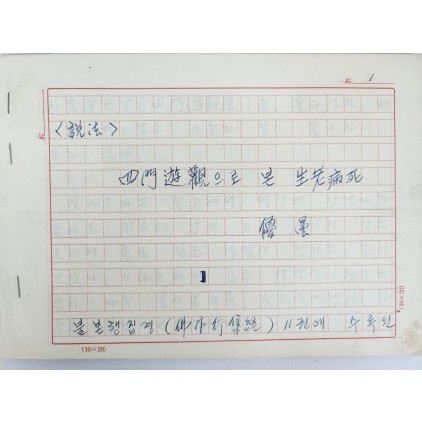 1
〈說法〉
四門遊觀으로 본 生老病死
1
불본행집경(佛本行集經) 11권에 수록된
(10×20)
(10×20)